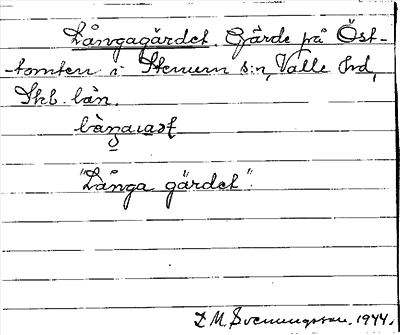 Långagärdet. Gärde på Öst-
-tomten i Stenum s:n, Valle hd,
Skb. län.
"Långa gärdet".
L M. Svenungsson. 1944.